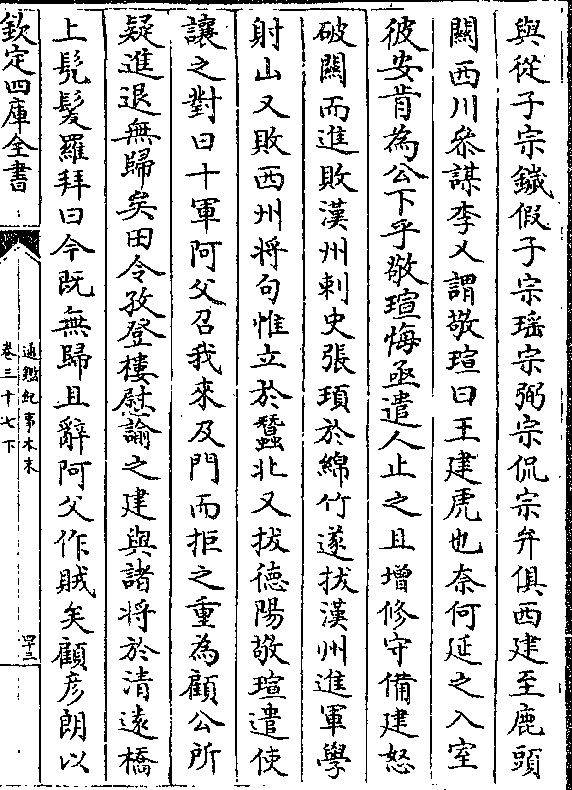 與從子宗鐬假子宗瑶宗弼宗侃宗弁俱西建至鹿頭
闗西川叅謀李乂謂敬瑄曰王建虎也奈何延之入室
彼安肯為公下乎敬瑄悔亟遣人止之且增修守備建怒
破闗而進敗漢州刺史張頊於綿竹遂拔漢州進軍學
射山又敗西州将句惟立於蠶北又拔德陽敬瑄遣使
讓之對曰十軍阿父召我來及門而拒之重為顧公所
疑進退無歸矣田令孜登樓慰諭之建與諸将於清遠橋
上髠髮羅拜曰今既無歸且辭阿父作賊矣顧彦朗以
欽定四庫全書
通鑑紀事本末
卷三十七下
四十三